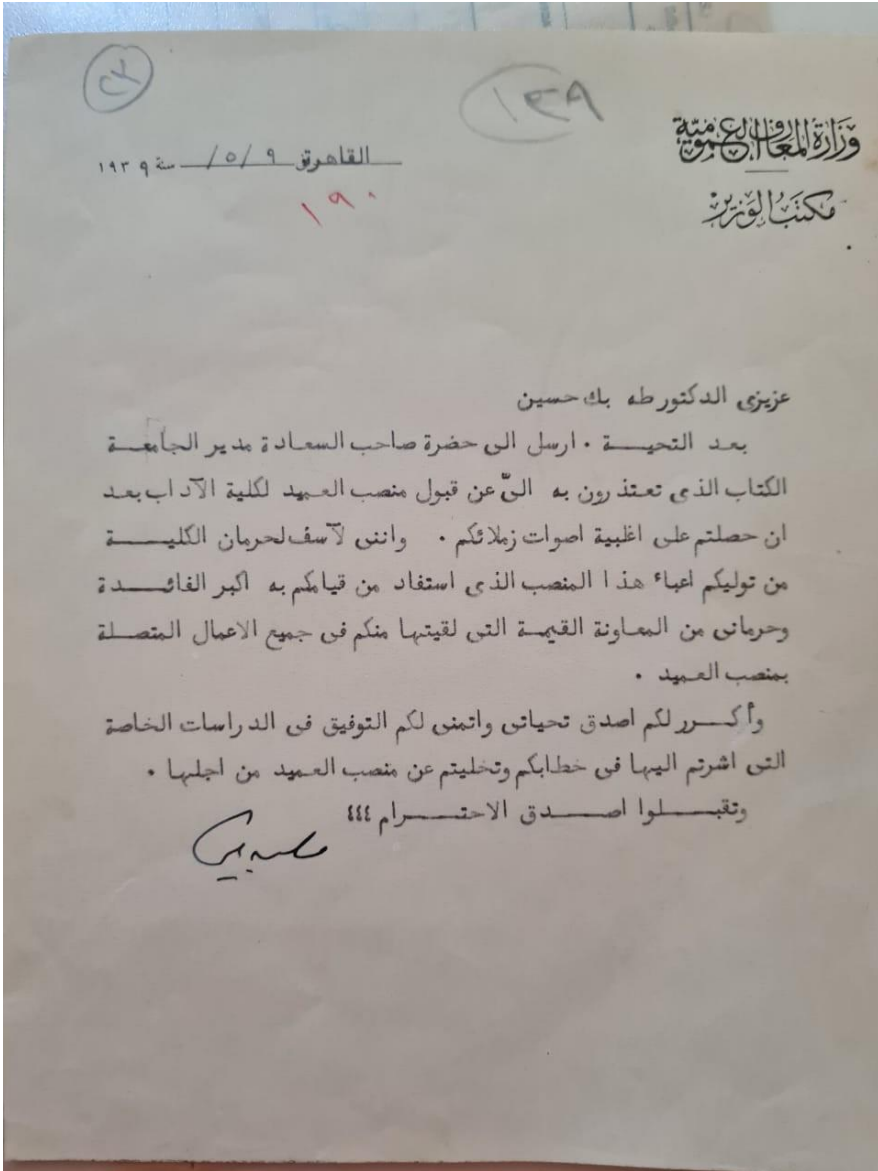 ٢٣
١٣٩
وزارة المعارف العمومية
مكتب الوزير
القاهرة في ٩ /٥ /  سنة ١٩٣٩
١٩٠
عزيزى الدكتور طه بك حسين
بعد التحيـــة ٠ ارسل الى حضرة صاحب السعادة مدير الجامعة
الكتاب الذى تعتذرون به الىّ عن قبول منصب العميد لكلية الآداب بعد
ان حصلتم على اغلبية اصوات زملائكم ٠ واننى لآسف لحرمان الكليــــة
من توليكم اعباء هذا المنصب الذى استفاد من قيامكم به اكبر الفائــدة
وحرمانى من المعاونة القيمة التى لقيتها منكم فى جميع الاعمال المتصلة
بمنصب العميد ٠
وأكـــرر لكم اصدق تحياتى واتمنى لكم التوفيق فى الدراسات الخاصة
التى اشرتم اليها فى خطابكم وتخليتم عن منصب العميد من اجلها ٠
وتقبــــلوا اصــــدق الاحتــــرام ٤٤٤